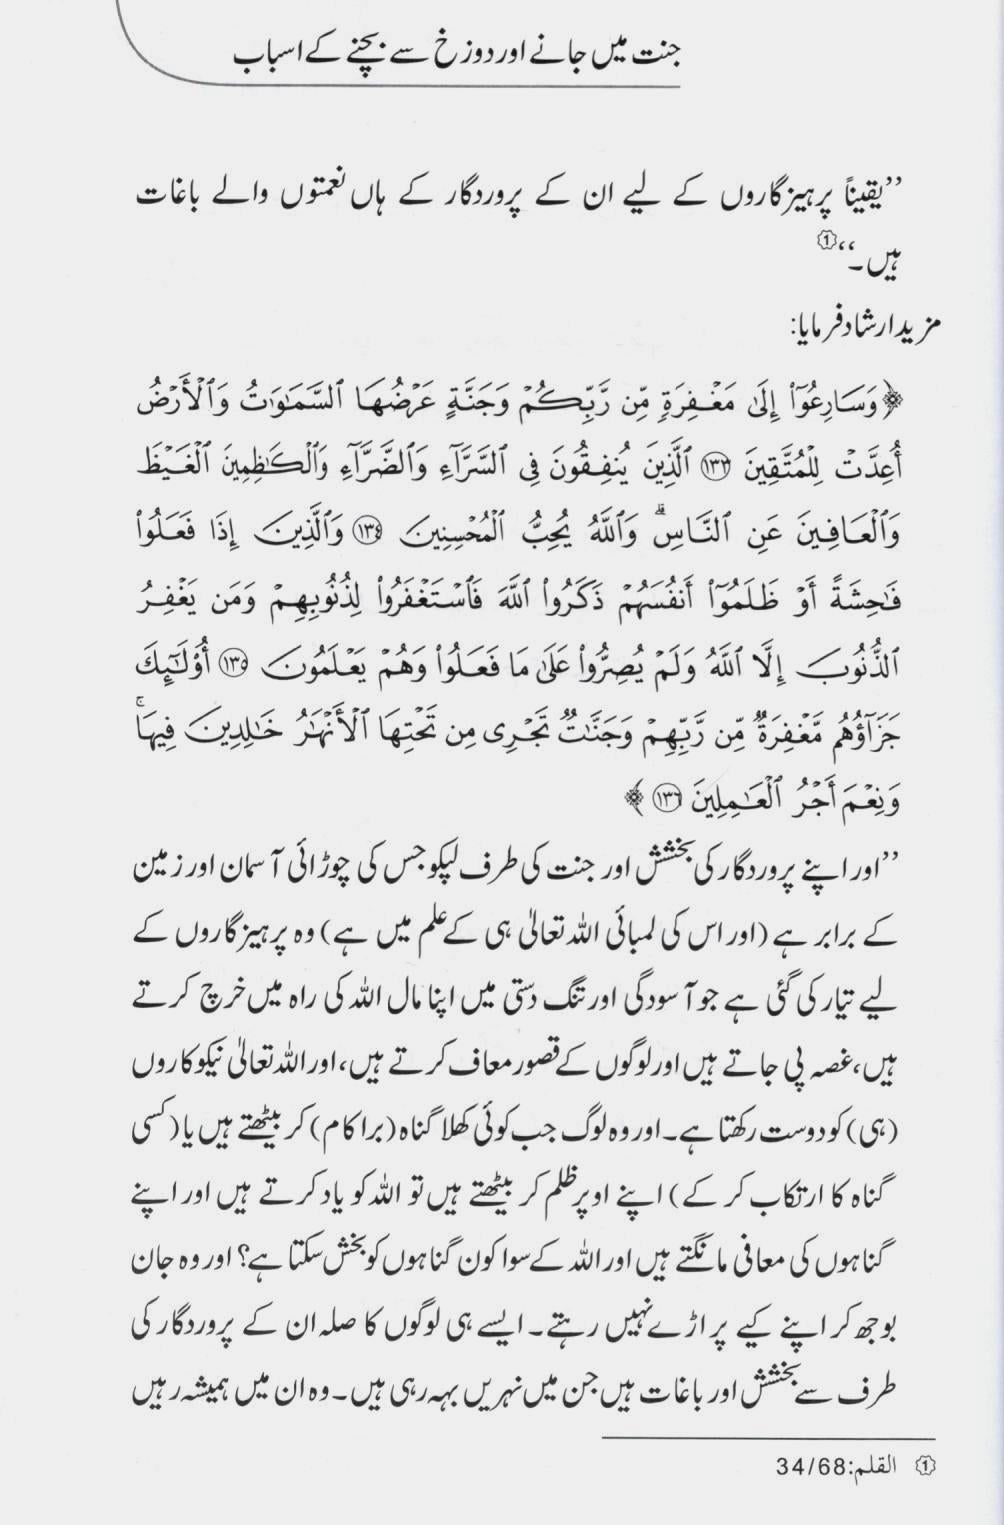 جنت میں جانے اور دوزخ سے بچنے کے اسباب
’’یقیناً پرہیزگاروں کے لیے ان کے پروردگار کے ہاں نعمتوں والے باغات
ہیں۔‘‘①
مزید ارشاد فرمایا:
﴿وَسَارِعُوٓا۟ إِلَىٰ مَغْفِرَةٍ مِّن رَّبِّكُمْ وَجَنَّةٍ عَرْضُهَا ٱلسَّمَـٰوَٰتُ وَٱلْأَرْضُ
أُعِدَّتْ لِلْمُتَّقِينَ ١٣٣ ٱلَّذِينَ يُنفِقُونَ فِى ٱلسَّرَّآءِ وَٱلضَّرَّآءِ وَٱلْكَـٰظِمِينَ ٱلْغَيْظَ
وَٱلْعَافِينَ عَنِ ٱلنَّاسِ ۗ وَٱللَّهُ يُحِبُّ ٱلْمُحْسِنِينَ ١٣٤ وَٱلَّذِينَ إِذَا فَعَلُوا۟
فَـٰحِشَةً أَوْ ظَلَمُوٓا۟ أَنفُسَهُمْ ذَكَرُوا۟ ٱللَّهَ فَٱسْتَغْفَرُوا۟ لِذُنُوبِهِمْ وَمَن يَغْفِرُ
ٱلذُّنُوبَ إِلَّا ٱللَّهُ وَلَمْ يُصِرُّوا۟ عَلَىٰ مَا فَعَلُوا۟ وَهُمْ يَعْلَمُونَ ١٣٥ أُو۟لَـٰٓئِكَ
جَزَآؤُهُم مَّغْفِرَةٌ مِّن رَّبِّهِمْ وَجَنَّـٰتٌ تَجْرِى مِن تَحْتِهَا ٱلْأَنْهَـٰرُ خَـٰلِدِينَ فِيهَا ۚ
وَنِعْمَ أَجْرُ ٱلْعَـٰمِلِينَ ١٣٦﴾
’’اور اپنے پروردگار کی بخشش اور جنت کی طرف لپکو جس کی چوڑائی آسمان اور زمین
کے برابر ہے (اور اس کی لمبائی اللہ تعالیٰ ہی کے علم میں ہے) وہ پرہیزگاروں کے
لیے تیار کی گئی ہے جو آسودگی اور تنگ دستی میں اپنا مال اللہ کی راہ میں خرچ کرتے
ہیں، غصہ پی جاتے ہیں اور لوگوں کے قصور معاف کرتے ہیں، اور اللہ تعالیٰ نیکوکاروں
(ہی) کو دوست رکھتا ہے۔ اور وہ لوگ جب کوئی کھلا گناہ (برا کام) کر بیٹھتے ہیں یا (کسی
گناہ کا ارتکاب کر کے) اپنے اوپر ظلم کر بیٹھتے ہیں تو اللہ کو یاد کرتے ہیں اور اپنے
گناہوں کی معافی مانگتے ہیں اور اللہ کے سوا کون گناہوں کو بخش سکتا ہے؟ اور وہ جان
بوجھ کر اپنے کیے پر اڑے نہیں رہتے۔ ایسے ہی لوگوں کا صلہ ان کے پروردگار کی
طرف سے بخشش اور باغات ہیں جن میں نہریں بہہ رہی ہیں۔ وہ ان میں ہمیشہ رہیں
① القلم:34/68